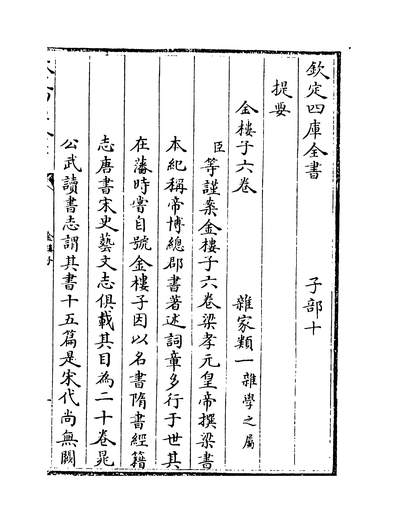 欽定四庫全書　子部十
提要
金樓子六卷　雜家類一雜學之屬
臣等謹案金樓子六卷梁孝元皇帝撰梁書
本紀稱帝博總郡書著述詞章多行于世其
在藩時嘗自號金樓子因以名書隋書經籍
志唐書宋史藝文志俱載其目為二十卷晁
公武讀書志謂其書十五篇是宋代尚無闕
金樓子